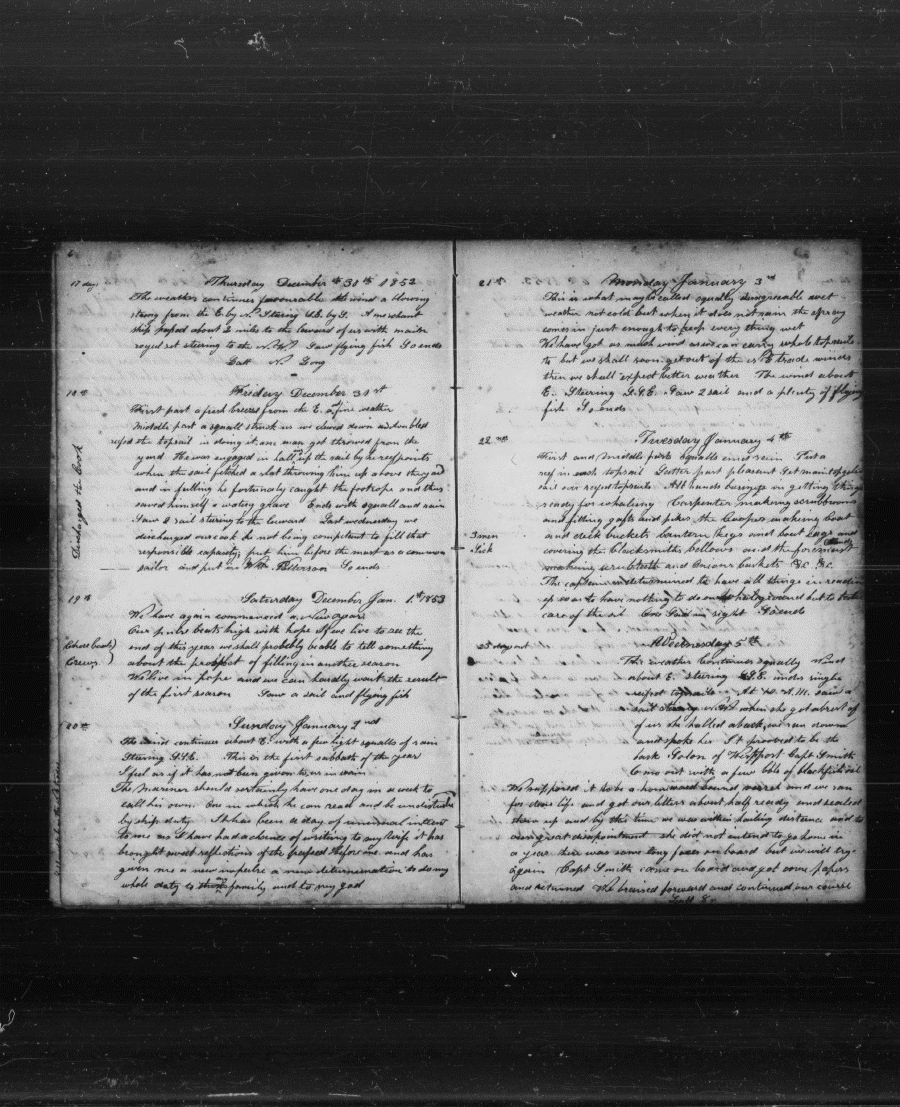 17 days
Thursday December 30th 1852
The weather continues favourable the wind a blowing
strong from the E. by N. Stering S.E. by S. A merchant
ship passed about 2 miles to the leward of us with main
royal set steering to the N.W. Saw flying fish So ends
Latt N. Long
18th
Friday December 31st
First part a fresh breeze from the E. & fine weather
Middle part a squall struck us we clewed down and doubled
reefed the topsail in doing it one man got throwed from the
yard He was engaged in hall up the sail by the reefpoints
when the sail fetched a slat throwing him up above the yard
and in falling he fortunately caught the footrope and thus
saved himself a watery grave Ends with squall and rain
Saw a sail steering to the leward Last wednesday we
discharged our cook he not being competent to fill that
responsible capacity put him before the mast as a common
sailor and put in Wm. Peterson So ends
Discharged the Cook
19th
Saturday December Jan. 1st 1853
We have again commenced a New year
Our pulse beats high with hope If we live to see the
end of this year we shall probely beable to tell something
about the prospect of filling in another season
We live in hope and we can hardly wait the result
of the first season Saw a sail and flying fish
Chose boats
Crews
20th
Sunday January 2nd
The wind continues about E. with a few light squalls of rain
Stering S.S.E. This is the first sabbath of the year
I feel as if it has not been given to us in vain
The Mariner should sertainly have one day in a week to
call his own. One in which he can read and be undisturbed
by ships duty It has been a day of unusual interest
to me as I have had a chance of writing to my Wife it has
brought sweet reflections of the past before me and has
given me a new impulse a new determination to do my
whole duty to my family and to my god
21st
Monday January 3rd
This is what may be called squally disagreeable wet
weather not cold but when it does not rain the spray
comes in just enough to keep every thing wet
We have got as much wind as we can carry whole topsails
to but we shall soon get out of the N.E. trade winds
then we shall expect better weather The wind about
E. Steering S.S.E. Saw 2 sail and a plenty of flying
fish So ends
22nd
Tuesday January 4th
First and Middle parts squalls and rain Put a
reef in each topsail Latter part pleasant Set maintopgallant
sail over reefed topsails All hands buseing in getting things
ready for whaleing Carpenter making scrubbrooms
and fitting gafts and pikes the Cooper making boat
and deck buckets Lantern kegs and boat kegs and
covering the blacksmiths bellows and the foremast
making scrubcloth and Onion baskets &c &c
The captain determined to have all things in readiness
up so as to have nothing to do on whaling ground but to take
care of the oil One Sail in sight So ends
3 men
Sick
23 days out
Wednesday 5th
This weather Continues squally Wind
about E. steering S.S.E. under single
reefed topsails At 10 A.M. saw a
sail when she got abrest of
of us she halled aback, we ran down
and spoke her It prooved to be the
bark Solon of Westport Capt Smith
6 mo out with a few bbls of blackfish oil
We supposed it to be a homeward bound vessel and we ran
for dear life and got our letters about half ready and sealed
them up and by this time we was within hailing distance and to
our great disapointment she did not intend to go home in
a year there was some long faces on board but we will try
again Capt Smith came on board and got some papers
and returned We braced forward and continued our course